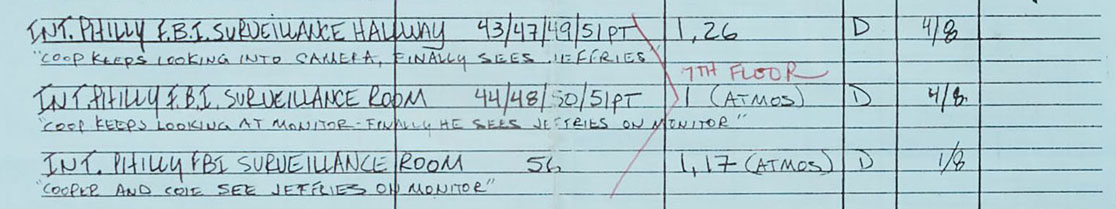 INT. PHILLY F.B.I. SURVEILLANCE HALLWAY 43/47/49/51PT 1, 26 D 4/8
"COOP KEEPS LOOKING INTO CAMERA, FINALLY SEES JEFFRIES"
7TH FLOOR
INT. PHILLY F.B.I. SURVEILLANCE ROOM 44/48/50/51PT 1 (ATMOS) D 4/8
"COOP KEEPS LOOKING AT MONITOR - FINALLY HE SEES JEFFRIES ON MONITOR"
INT. PHILLY FBI SURVEILLANCE ROOM 56 1, 17 (ATMOS) D 1/8
"COOPER AND COLE SEE JEFFRIES ON MONITOR"